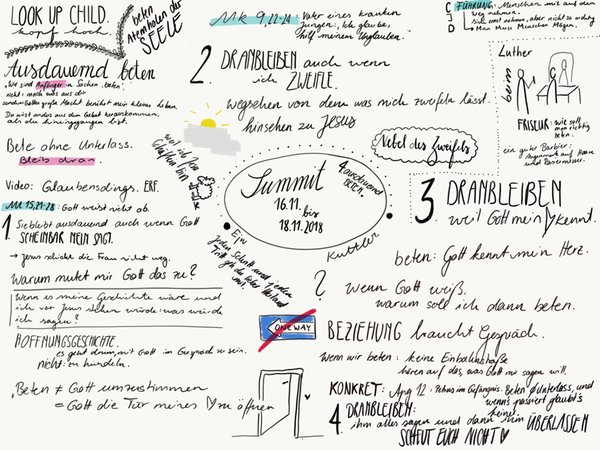 LOOK UP CHILD.
kopf hoch.
beten
Atemholen der
SEELE
Ausdauernd beten
"Wir sind Anfänger in Sachen beten."
nicht: mach was aus dir
sondern Gottes große Macht berührt mein kleines Leben.
Du wirst anders aus dem Gebet herauskommen,
als du hineingegangen bist.
Bete ohne Unterlass.
Bleib dran
Video: Glaubensdings. ERF.
Mt 15,21-28: Gott weist nicht ab.
1. Sie bleibt ausdauernd auch wenn Gott
SCHEINBAR NEIN SAGT.
→ Jesus schickt die Frau nicht weg.
Warum mutet mir Gott das zu?
Wenn es meine Geschichte wäre und
ich vor Jesus stehen würde: was würde
ich sagen?
HOFFNUNGSGESCHICHTE.
es geht drum, mit Gott im Gespräch zu sein.
nicht: zu hündeln.
Beten ≠ Gott umzustimmen
= Gott die Tür meines ♡ zu öffnen
Mk 9,12-24
Vater eines kranken
Jungen: Ich glaube,
hilf meinem Unglauben."
2 DRANBLEIBEN auch wenn
ich ZWEIFLE.
wegsehen von dem was mich zweifeln lässt.
hinsehen zu Jesus
Nebel des Zweifels
weil ich sein
Schäfchen bin
Summit
16.11.
bis
18.11.2018
4 ausdauernd
beten.
Kuttler
Ein
jeden Schritt und jeden
Tritt
3. DRANBLEIBEN
weil Gott mein ♡ kennt.
beten: Gott kennt mein Herz.
? wenn Gott weiß,
warum soll ich dann beten.
ONE WAY
BEZIEHUNG braucht Gespräch.
Wenn wir beten: keine Einbahnstraße
hören auf das, was Gott mir sagen will.
KONKRET: Apg 12: Petrus im Gefängnis. Beten o Unterlass, und
wenns passiert glaubt's
keiner.
4 DRANBLEIBEN:
ihm alles sagen und dann ihm ÜBERLASSEN
SCHEUT EUCH NICHT ♡
C
J
D
FÜHRUNG: Menschen mit auf den
Weg nehmen
ernst nehmen, aber nicht so wichtig
→ Man Muss Menschen Mögen.
Luther
beim
FRISEUR: wie soll
man richtig
beten.
ein guter Barbier:
Augenmerk auf Haare
und Rasiermesser.